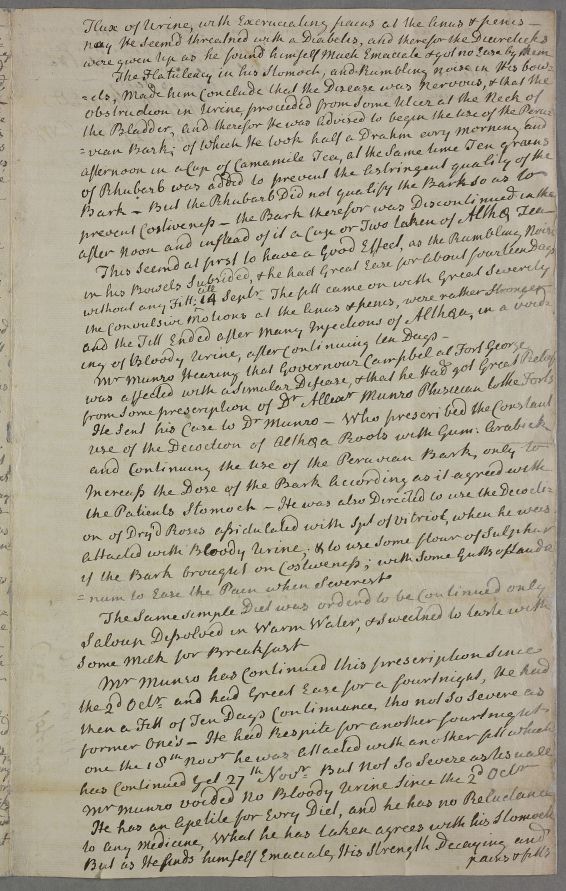 Flux of Urine, with Excruciating pains at the Anus & penis —
nay He seem'd threatned with a Diabetis, and therefor the Diureticks
were given up as he found himself Much Emaciate & got no Ease by them
The Flatulency in his Stomoch, and Rumbling noise in His bow=
=els, Made him Conclude that the Disease was Nervous, & that the
obstruction in Urine, proceeded from Some Ulcer at the Neck of
the Bladder, and therefor He was advised to begin the use of the Peru=
=vian Bark; of which He took half a Drahm evry Morning and
afternoon in a Cup of Camamile Tea, at the Same time Ten grains
of Rhubarb was added to prevent the Astringent quality of the
Bark — But the Rhubarb Did not qualify the Bark so as to
prevent Costiveness — the Bark therefor was Discontinued in the
after Noon and instead of it a Cup or Two taken of Althæ Tea —
This Seem'd at first to have a Good Effect, as the Rumbling Noise
in his Bowels Subsided, & he had Great Ease for about fourteen Days
without any Fitt; till 14 Septr. The fitt came on with Great Severity
the Convulsive Motions at the Anus & penis, were rather Stronger
and the Fitt Ended after Many Injections of Althæa, in a void=
ing of Bloody Urine, after Continuing ten Days —
Mr Munro Hearing that Governour Campbel at Fort George
was affected with a Simular Disease, & that he Had got Great Relief
from Some prescription of Dr Allexr Munro Phisician to the Forts
He Sent his Case to Dr Munro — Who prescribed the Constant
use of the Decoction of Althæa Roots with Gum: Arabick
and Continuing the use of the Peruvian Bark, only to
Increass the Dose of the Bark according as it agreed with
the Patients Stomoch — He was also Directed to use the Decocti=
on of Dry'd Roses assidulated with Spt of Vitriol, when he was
attacted with Bloody Urine; & to use Some flour of Sulphur
if the Bark brought on Costiveness; with Some Gutts of Lauda
=num to Ease the Pain when Severest
The Same Simple Diet was orderd to be Continued only
Saloup Dissolved in Warm Water, & Sweetned to taste with
Some Milk for Breakfast
Mr Munro has Continued this prescription Since
the 2d Octr. and had Great Ease for a fourtnight, He had
then a Fitt of Ten Days Continuance, tho not So Severe as
former One's — He had Respite for another fourtnight
one the 18th Novr he was attacted with another fitt which
has Continued yet 27th Novr. But not So Severe as Usuale
Mr Munro voided No Bloody Urine Since the 2d Octr
He has an Apetite for Evry Diet, and he has no Reluctance
to any Medicine, What he has taken agrees with his Stomoch
But as He finds himself Emaciate, His Strength Decaying and
pains & fitts